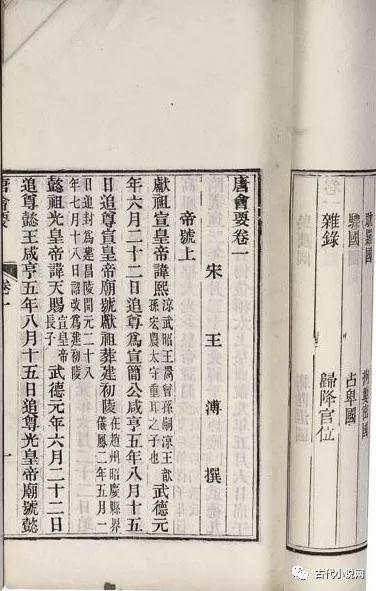 驃國 占卑國
雜錄 歸降官位
唐會要卷一
宋 王溥 撰
帝號上
獻祖宣皇帝諱熙涼武昭王暠曾孫嗣涼王歆孫宏農太守重耳之子也武德元
年六月二十二日追尊爲宣簡公咸亨五年八月十五
日追尊宣皇帝廟號獻祖葬建初陵在趙州昭慶縣界儀鳳二年五月一
日追封爲建昌陵開元二十八年七月十八日詔改爲建初陵
懿祖光皇帝諱天賜宣皇帝長子武德元年六月二十二日
追尊懿王咸亨五年八月十五日追尊光皇帝廟號懿
唐會要 卷一 一
古代小说网